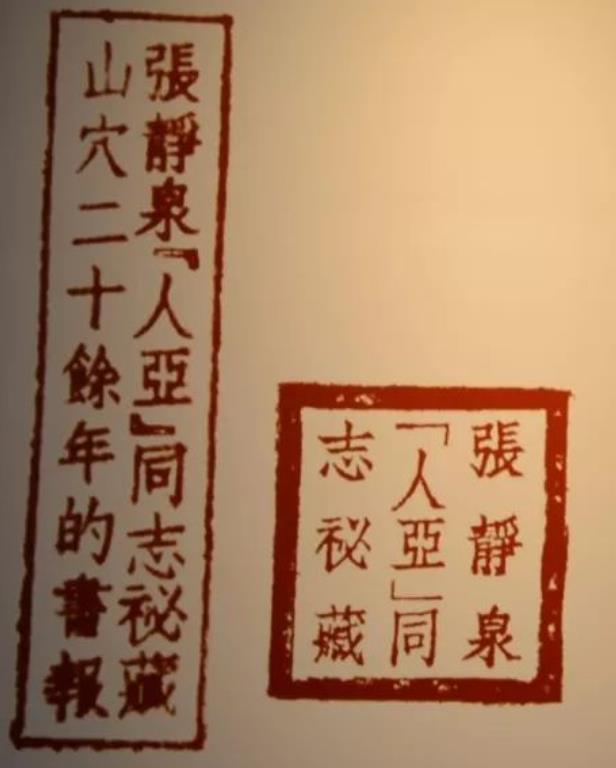 張靜泉『人亞』同志祕藏
山穴二十餘年的書報
張靜泉
「人亞」同
志祕藏